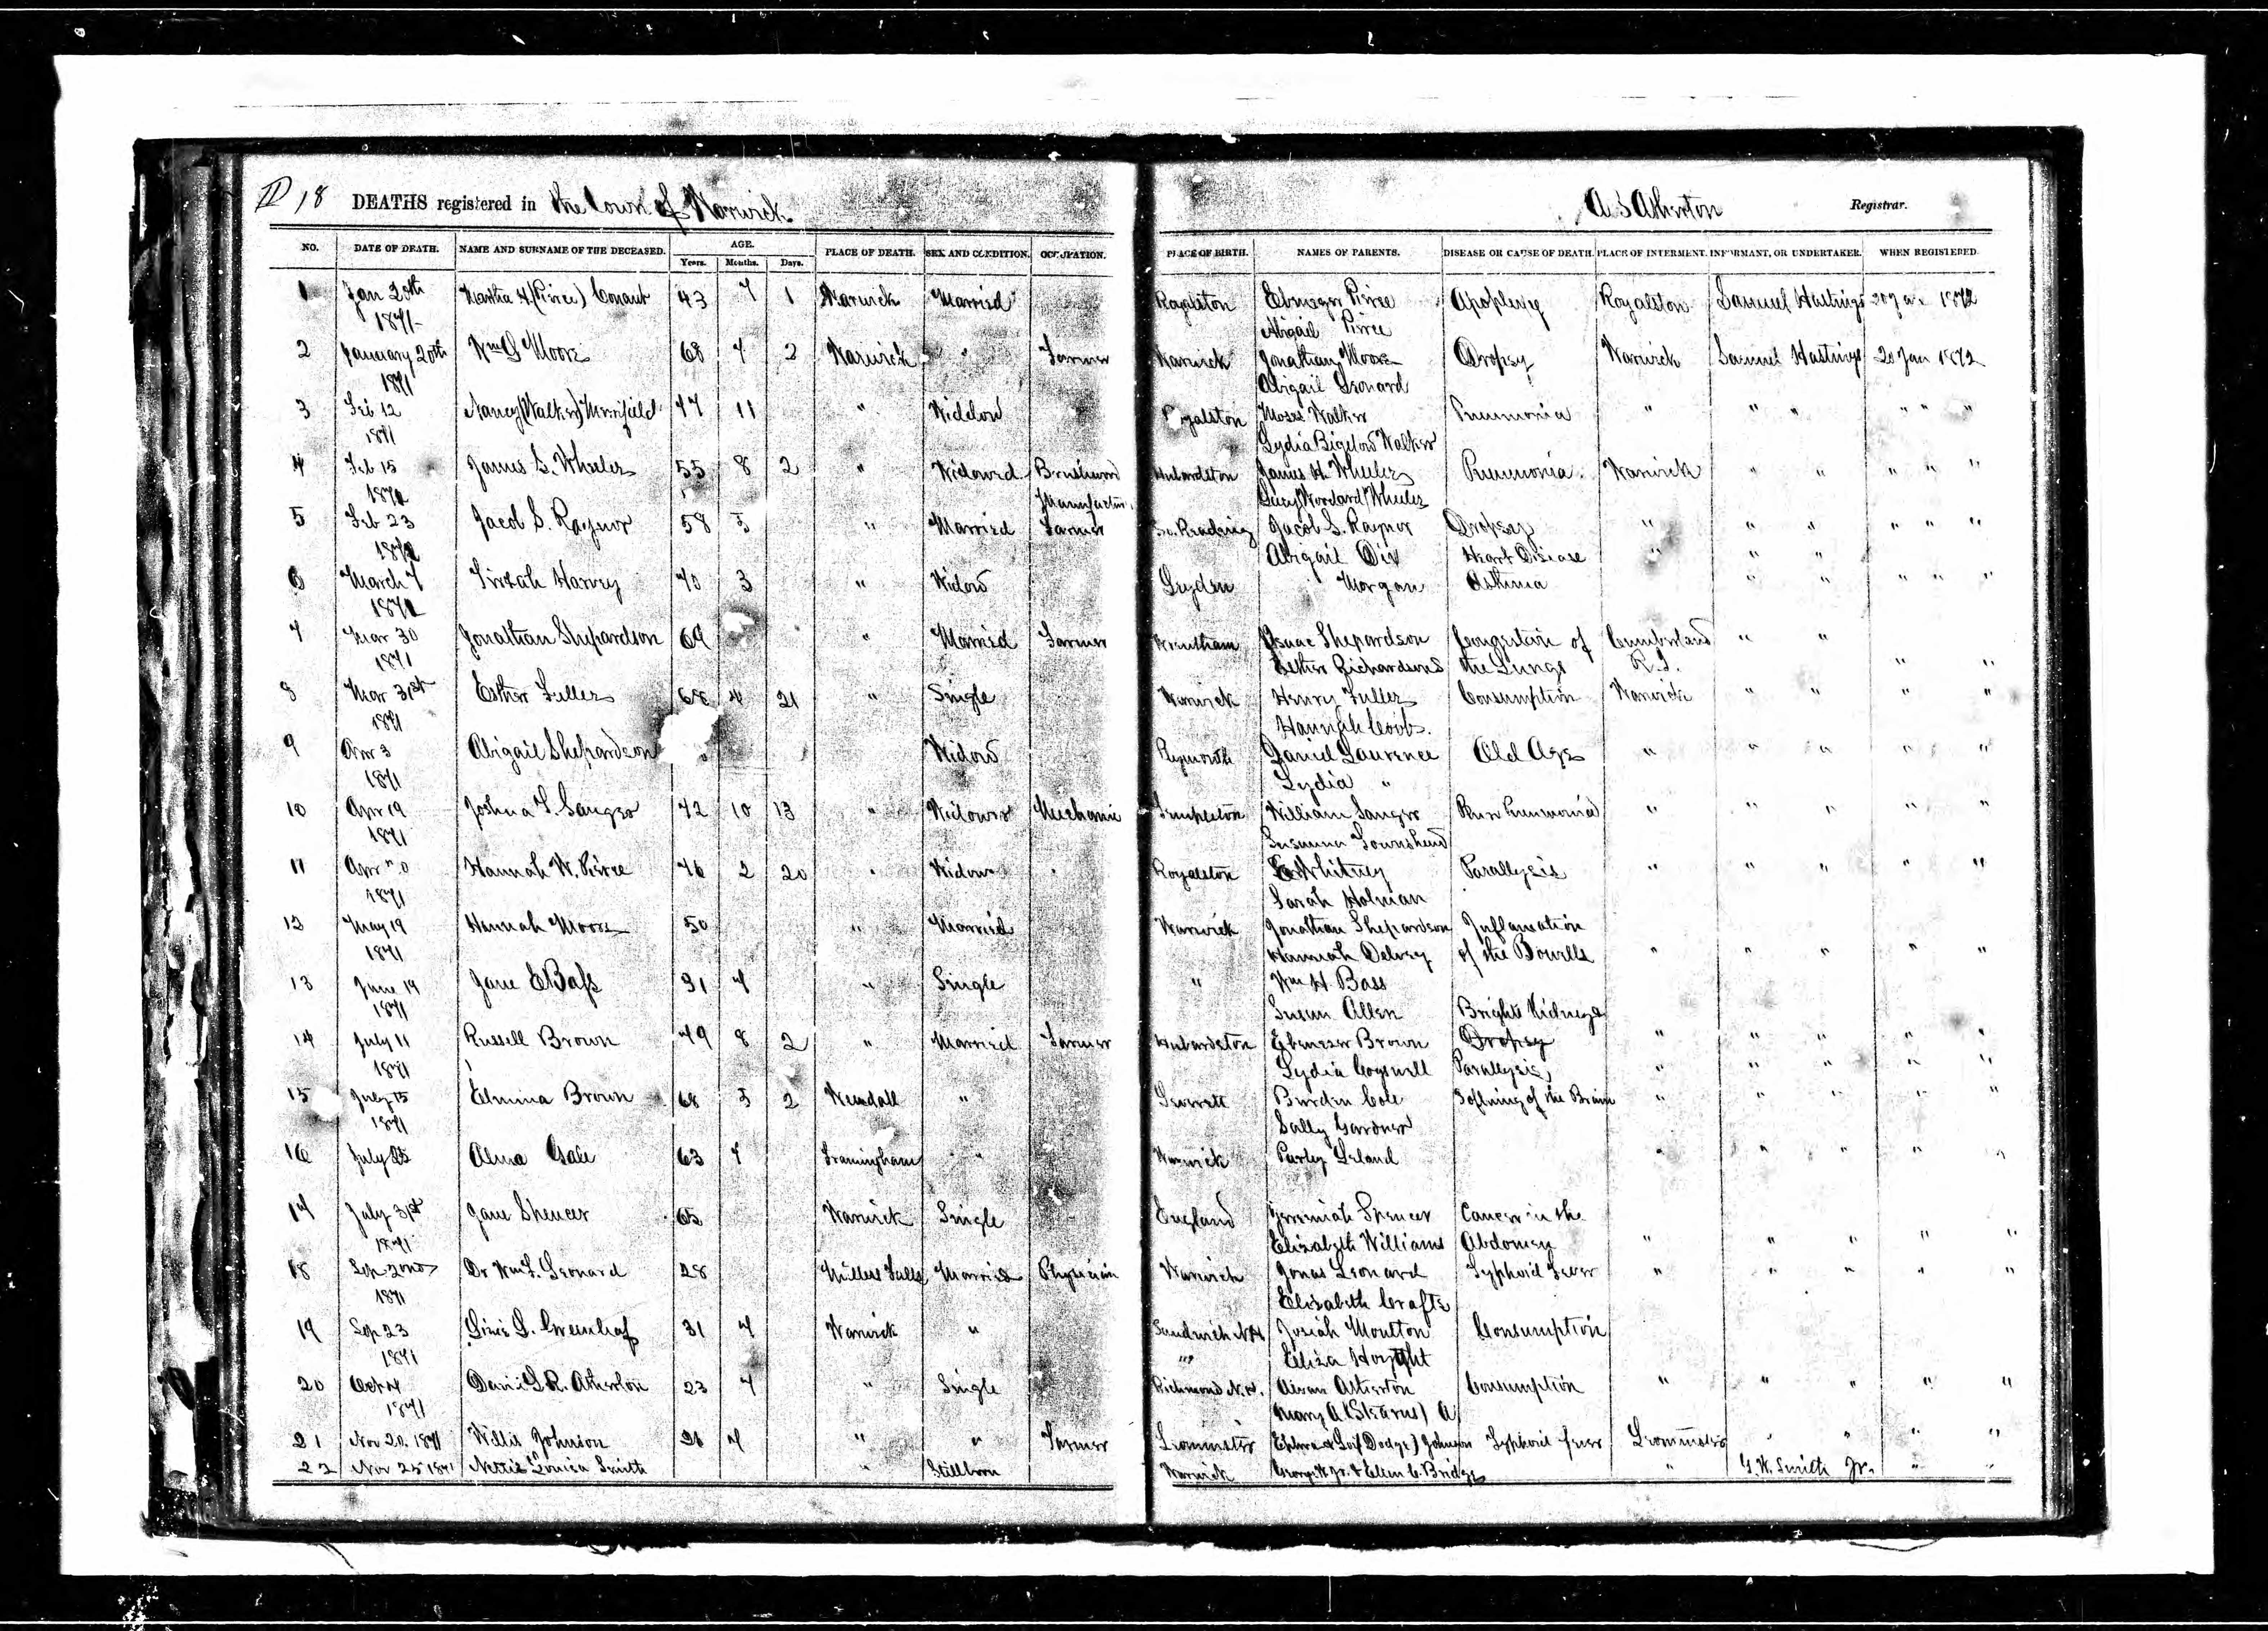 D 18 DEATHS registered in the Town of Warwick. A S Atherton Registrar.
NO. DATE OF DEATH. NAME AND SURNAME OF THE DECEASED. AGE. PLACE OF DEATH. SEX AND CONDITION. OCCUPATION. PLACE OF BIRTH. NAMES OF PARENTS. DISEASE OR CAUSE OF DEATH. PLACE OF INTERMENT. INFORMANT, OR UNDERTAKER. WHEN REGISTERED.
Years. Months. Days.
1 Jan 20th Martha H (Pirree) Conant 43 7 1 Warwick Married Royalston Ebenezer Pirree Apoplexy Royalston Samuel Hastings 1872
1871 Abigail Pirree
2 January 20th Wm G Moore 68 7 2 Warwick " Farmer Warwick Jonathan Moore Dropsy Warwick Samuel Hastings 20 Jan 1872
1871 Abigail Leonard
3 Feb 12 Nancy (Walker) Merrifield 77 11 " Widdow Royalston Moses Walker Pneumonia " " " " " "
1871 Lydia Bigelow Walker
4 Feb 15 James S. Wheeler 55 8 2 " Widowed Brushwood Hubardston James H. Wheeler Pneumonia. Warwick " " " " "
1871 Manufactur. Lucy Woodard Wheeler
5 Feb 23 Jacob S. Raynor 58 5 " Married Farmer So. Reading Jacob S. Raynor Dropsy " " " " " "
1871 Abigail Dix Heart Disease " " "
6 March 7 Tirzah Harvey 70 3 " Widow Leyden Morgan Asthma " " " " "
1871
7 Mar 30 Jonathan Shepardson 69 " Married Farmer Wrentham Isaac Shepardson Congestion of Cumberland " "
1871 Esther Richardson the Lungs R.I. " "
8 Mar 31st Esther Fuller 68 4 21 " Single Warwick Henry Fuller Consumption Warwick " " " "
1871 Hannah Cobb.
9 Apr 3 Abigail Shepardson Widow Plymouth Daniel Laurence Old Age " " " " "
1871 Lydia "
10 Apr 19 Joshua T. Sanger 72 10 13 " Widower Mechanic Templeton William Sanger Pneumonia " " " " "
1871 Susanna Townshend
11 Apr Hannah W. Pirree 76 2 20 " Widow Royalston Whitney Parallysis " " " " "
1871 Sarah Holman
12 May 19 Hannah Moore 50 " Married Warwick Jonathan Shepardson Inflamation
1871 Hannah Delvey of the Bowells " " " " "
13 June 19 Jane E Bass 31 7 " Single " Wm H. Bass
1871 Susan Allen Brights Kidneys
14 July 11 Russell Brown 79 8 2 " Married Farmer Hubardston Ebenezer Brown Dropsy " " " " "
1871 Lydia Cogswell Parallysis " " " " "
15 July 15 Elmina Brown 68 5 2 Wendall " Leverett Burden Cole Softning of the Brain " " " " "
1871 Sally Gardner
16 July 25 Alma Gale 63 7 Framingham " Warwick Parley Leland " " " " "
17 July 31st Jane Spencer 65 Warwick Single England Jeremiah Spencer Cancer in the
1871 Elizabeth Williams Abdomen " " " " "
18 Sep 2nd Dr Wm F. Leonard 28 Millers Falls Married Physician Warwick Jonas Leonard Typhoid Fever " " " " "
1871 Elisabeth Crafts
19 Sep 23 L. Greenleaf 31 7 Warwick " Sandwich NH Josiah Moulton Consumption
1871 " Eliza Hoyght
20 Oct 4 David L.R. Atherton 23 7 " Single Richmond N.H. Atherton Consumption " " " " "
1871 Mary A (Stearns) A
21 Nov 20. 1871 Willis Johnson 26 7 " " Farmer Leominster Dodge) Johnson Typhoid fever Leominster " " " "
22 Nov 25 1871 Nettie Louisa Smith " Stillborn Warwick George W Jr. & Ellen C. Bridge " G. W. Smith Jr. " "